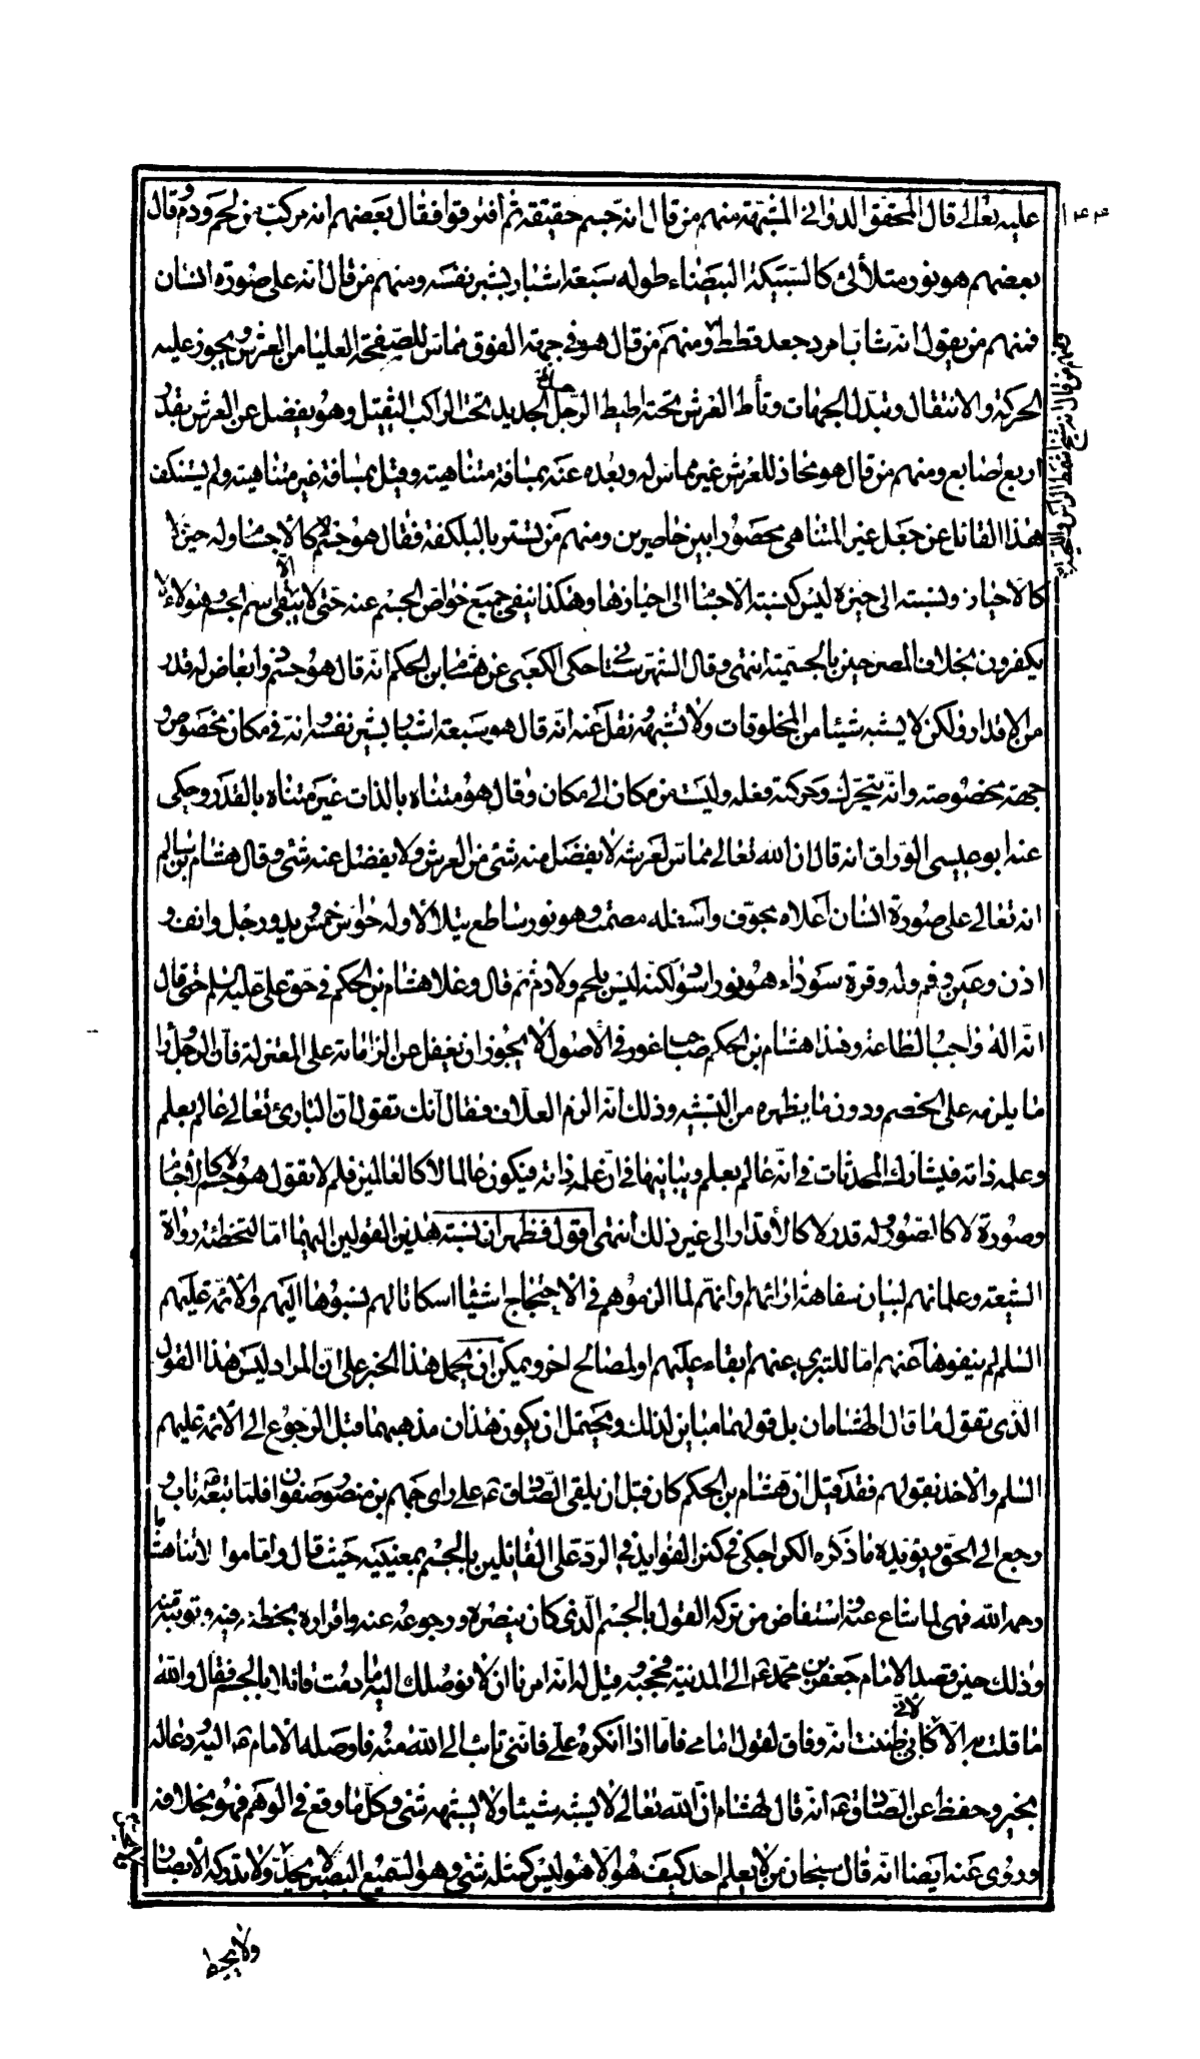 ١٤٤
عليه تعالى قال المحقق الدواني المشبهة منهم من قال انه جسم حقيقة ثم افترقوا فقال بعضهم انه مركب من لحم ودم وقال
بعضهم هو نور متلألئ كالسبيكة البيضاء طوله سبعة اشبار بشبر نفسه ومنهم من قال انه على صورة انسان
فمنهم من يقول انه شاب امرد جعد قطط ومنهم من قال هو في جهة الفوق مماس للصفحة العليا من العرش ويجوز عليه
الحركة والانتقال وتبدل الجهات وتأط العرش تحته اطيط الرحل الجديد تحت الراكب الثقيل وهو يفضل عن العرش بقدر
اربع اصابع ومنهم من قال هو محاذ للعرش غير مماس له وبعده عنه بمسافة متناهية وقيل بمسافة غير متناهية ولم يستنكف
هذا القائل عن جعل غير المتناهي محصورا بين حاصرين ومنهم من تستر بالبلكفة فقال هو جسم لا كالاجسام وله حيز لا
كالاحياز ونسبته الى حيزه ليس كنسبة الاجسام الى احيازها وهكذا ينفي جميع خواص الجسم عنه حتى لا يبقى الا اسم الجسم هؤلاء لا
يكفرون بخلاف المصرحين بالجسمية انتهى وقال الشهرستاني حكى الكعبي عن هشام بن الحكم انه قال هو جسم ذو ابعاض له قدر
من الاقدار ولكن لا يشبه شيئا من المخلوقات ولا تشبهه نقل عنه انه قال هو سبعة اشبار بشبر نفسه انه في مكان مخصوص و
جهة مخصوصة وانه يتحرك وحركته فعله وليست من مكان الى مكان وقال هو متناه بالذات غير متناه بالقدر وحكى
عنه ابو عيسى الوراق انه قال ان الله تعالى مماس لعرشه لا يفضل منه شئ من العرش ولا يفضل عنه شئ وقال هشام بن سالم
انه تعالى على صورة انسان اعلاه مجوف واسفله مصمت وهو نور ساطع يتلألأ وله حواس خمس ويد ورجل وانف و
اذن وعين وفم وله وفرة سوداء هو نور اسود لكنه ليس بلحم ولا دم ثم قال وغلا هشام بن الحكم في حق علي عليه السلم حتى قال
انه اله واجب الطاعة وهذا هشام بن الحكم صاحب غور في الاصول لا يجوز ان يغفل عن الزاماته على المعتزلة فان الرجل وراء
ما يلزمه على الخصم ودون ما يظهره من التشبيه وذلك انه الزم العلاف فقال انك تقول ان البارئ تعالى عالم بعلم
وعلمه ذاته فيشارك المحدثات في انه عالم بعلم ويباينها في ان علمه ذاته فيكون عالما لا كالعالمين فلم لا تقول هو جسم لا كالاجسام
وصورة لا كالصور وله قدر لا كالأقدار الى غير ذلك انتهى اقول فظهر ان نسبة هذين القولين اليهما اما لتخطئة رواة
الشيعة وعلمائهم لبيان سفاهة ارائهم وانهم لما الزموهم في الاحتجاج اشياء اسكاتا لهم نسبوها اليهم والائمة عليهم
السلم لم ينفوها عنهم اما للتبري عنهم ابقاء عليهم او لمصالح اخر ويمكن ان يحمل هذا الخبر على ان المراد ليس هذا القول
الذي تقول ما قال الهشامان بل قولهما مباين لذلك ويحتمل ان يكون هذان مذهبهما قبل الرجوع الى الائمة عليهم
السلم والاخذ بقولهم فقد قيل ان هشام بن الحكم كان قبل ان يلقى الصادق ع على راى جهم بن صفوان فلما تبعه ع تاب و
رجع الى الحق ويؤيده ما ذكره الكراجكي في كنز الفوايد في الرد على القائلين بالجسم بمعنييه حيث قال واما موالاتنا هشاما
رحمه الله فهي لما شاع عنه واستفاض من تركه القول بالجسم الذي كان ينصره ورجوعه عنه واقراره بخطئه فيه وتوبته منه
وذلك حين قصد الامام جعفر بن محمد ع الى المدينة فحجبه وقيل له انه امرنا ان لا نوصلك اليه ما دمت قائلا بالجسم فقال والله
ما قلت به الا لاني ظننت انه وفاق لقول امامي فاما اذا انكره علي فانني تائب الى الله منه فاوصله الامام ع اليه ودعا له
بخير وحفظ عن الصادق ع انه قال لهشام ان الله تعالى لا يشبه شيئا ولا يشبهه شئ وكل ما وقع في الوهم فهو بخلافه
وروى عنه ايضا انه قال سبحان من لا يعلم احد كيف هو الا هو ليس كمثله شئ وهو السميع البصير لا يحد ولا تدركه الابصار
ولا يحيط
ومنهم من قال انه شيخ اشمط الراس واللحية